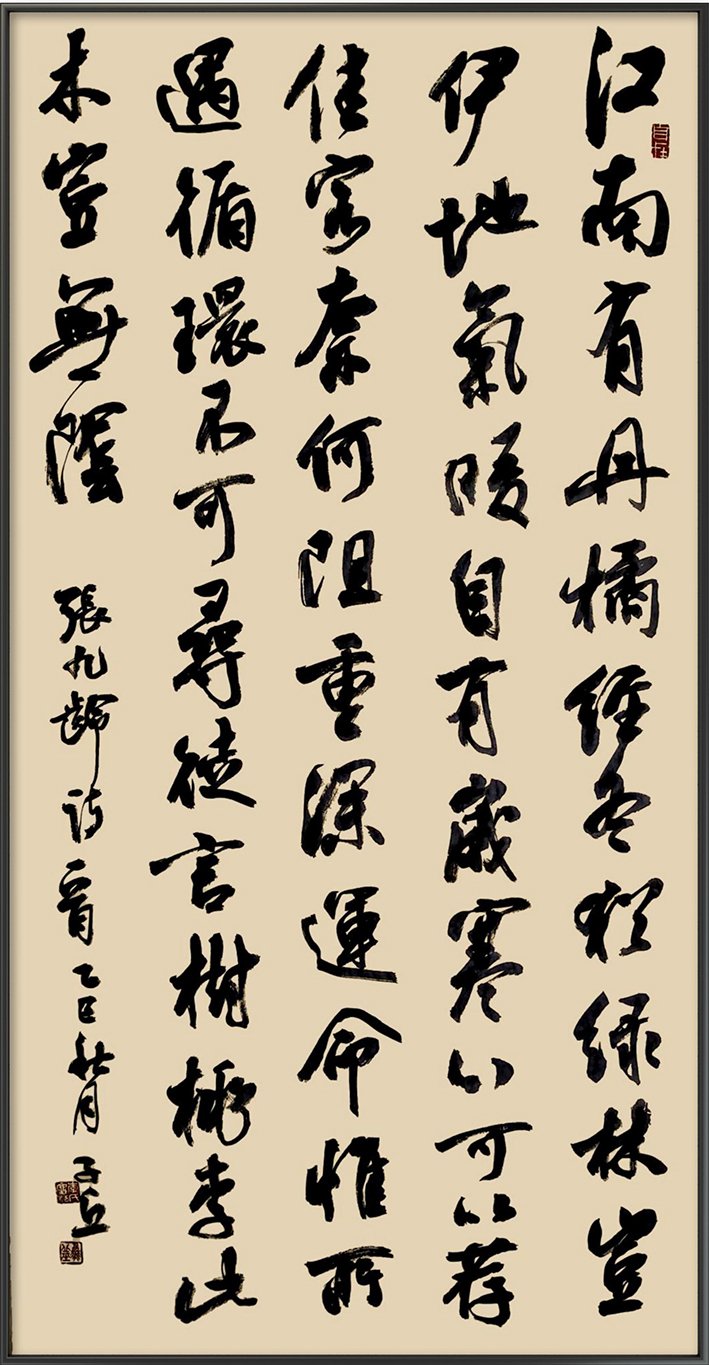 江南有丹橘經冬猶綠林豈
伊地氣暖自有歲寒心可以荐
佳客奈何阻重深運命惟所
遇循環不可尋徒言樹桃李此
木豈無陰
張九齡詩一首 乙巳秋月 子丘